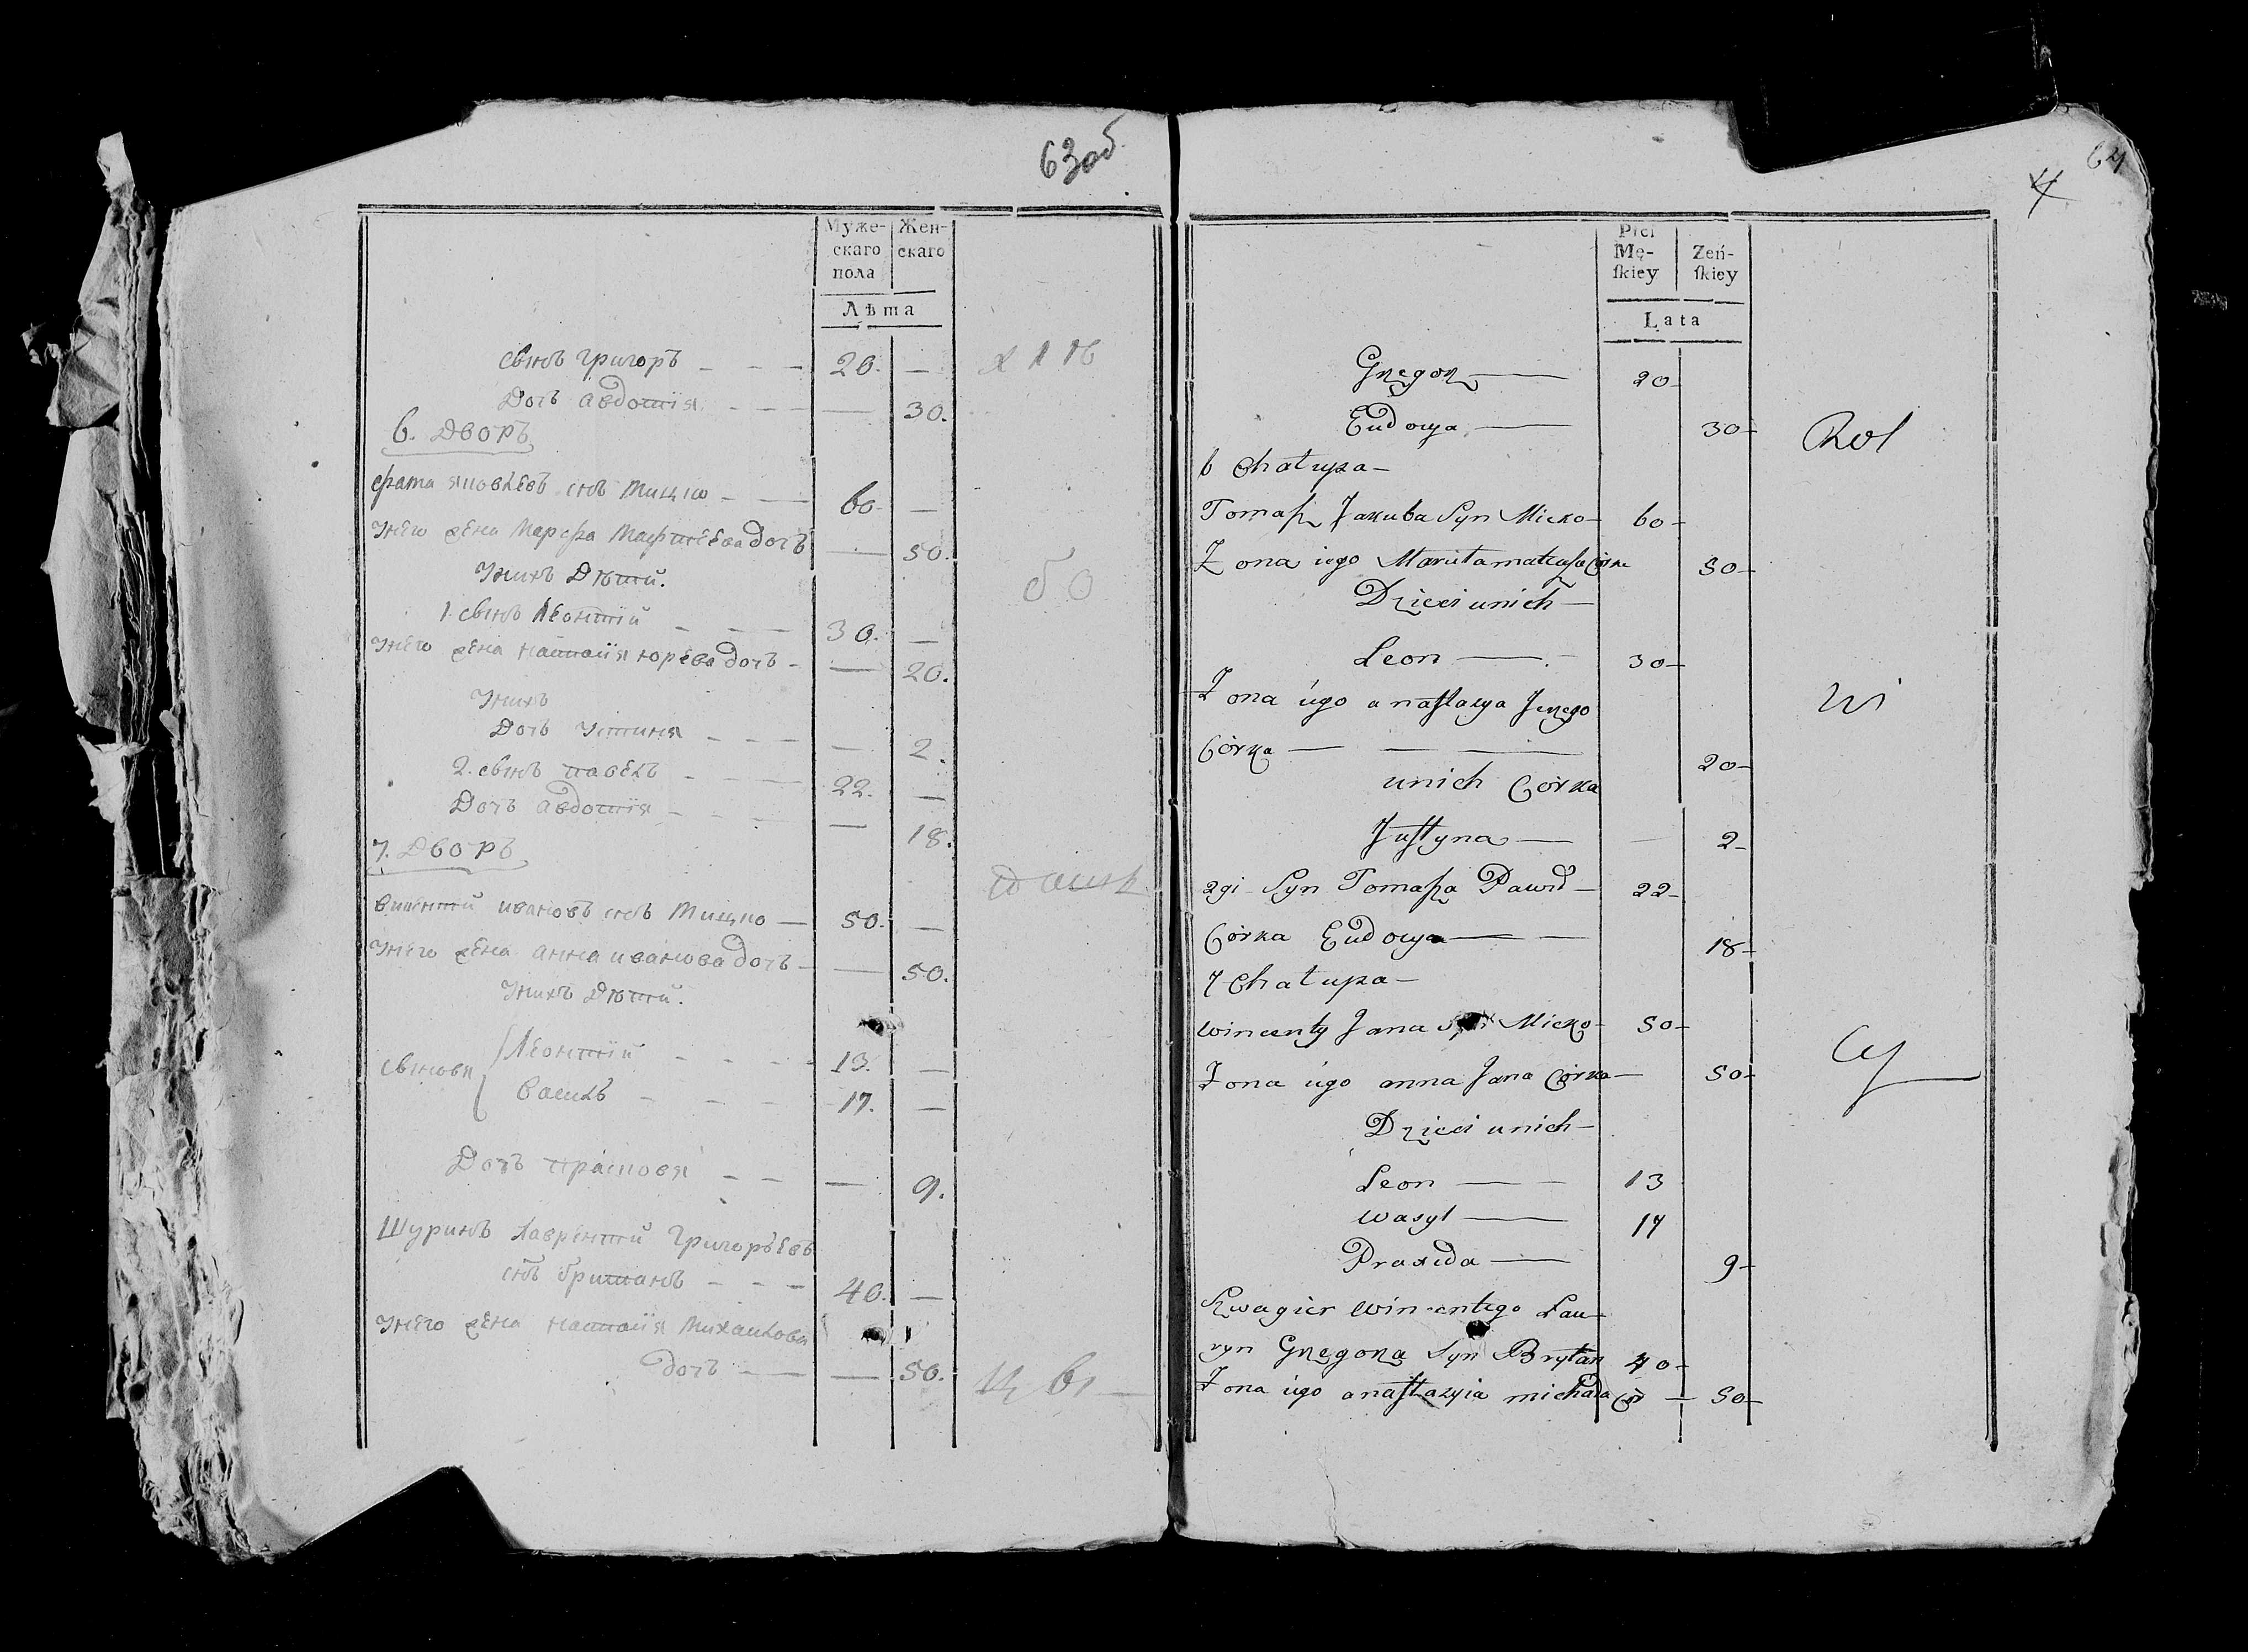 63об.
Муже-
скаго
пола
Жен-
скаго
Лѣта
сынъ григоръ — — — 20. —
Дочь авдотія — — — — 30.
6. Дворъ
яковлевъ снъ Мицко — — 60 —
Унего жена Марфа Матѵеева дочь — 50.
Унихъ Дѣти.
1. сынъ Леонтій — — — 30. —
Унего жена настасія юрева дочь — — 20.
Унихъ
Дочь Устиня — — — — 2.
2. сынъ павелъ — — — 22. —
Дочь авдотія — — — — 18.
7. Дворъ
викентій ивановъ снъ Мицко — 50. —
Унего жена анна иванова дочь — — 50.
Унихъ Дѣти.
сыновя
Леонтій — — — — 13. —
василь — — — — 17. —
Дочь прасковя — — — 9.
Шуринъ лаврентій григорьевъ
снъ британъ — — — 40. —
Унего жена настасія Михаилова
дочь — — — 50.
64
4
Płci
Mę-
ſkiey
Zeń-
ſkiey
Lata
Grzegorz — 20
Eudocya — 30
6 Chałupa
Tomaſz Jakuba Syn Micko — 60
Zona iego Maruta mateuſza Córka 50
Dzieci unich
Leon — 30
Zona iego anaſtazya Jerzego
Córka — — — 20
unich Córka
Juſtyna — 2
2gi Syn Tomaſza Paweł — 22
Córka Eudocya — 18
7 Chałupa
Wincenty Jana Syn Micko — 50
Zona iego anna Jana Córka — 50
Dzieci unich
Leon — 13
Wasyl — 17
Praxeda — 9
Szwagier Wincentego Law-
ryn Grzegorza Syn Brytan 40
Zona iego anaſtazyia michała Cór — 50